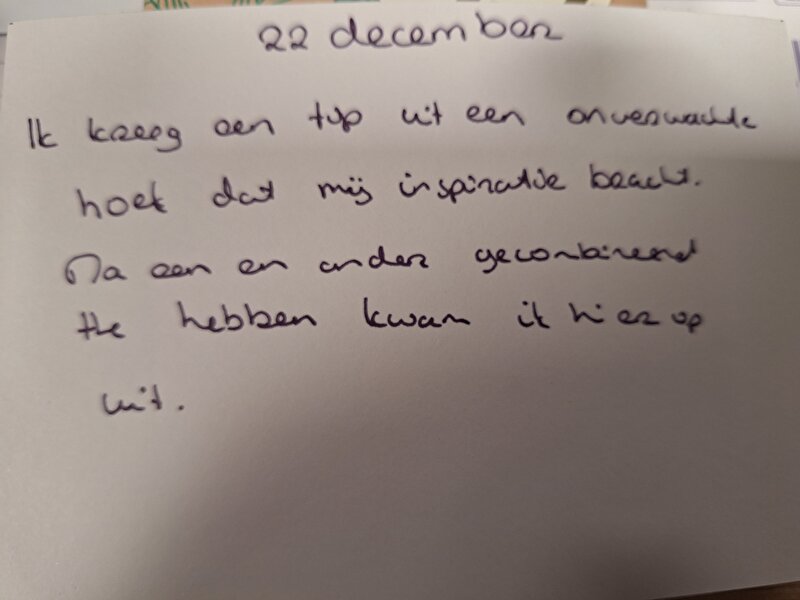 22 december
Ik kreeg een tip uit een onverwachte
hoek dat mij inspiratie bracht.
Na een en ander gecombineerd
te hebben kwam ik hier op
uit.